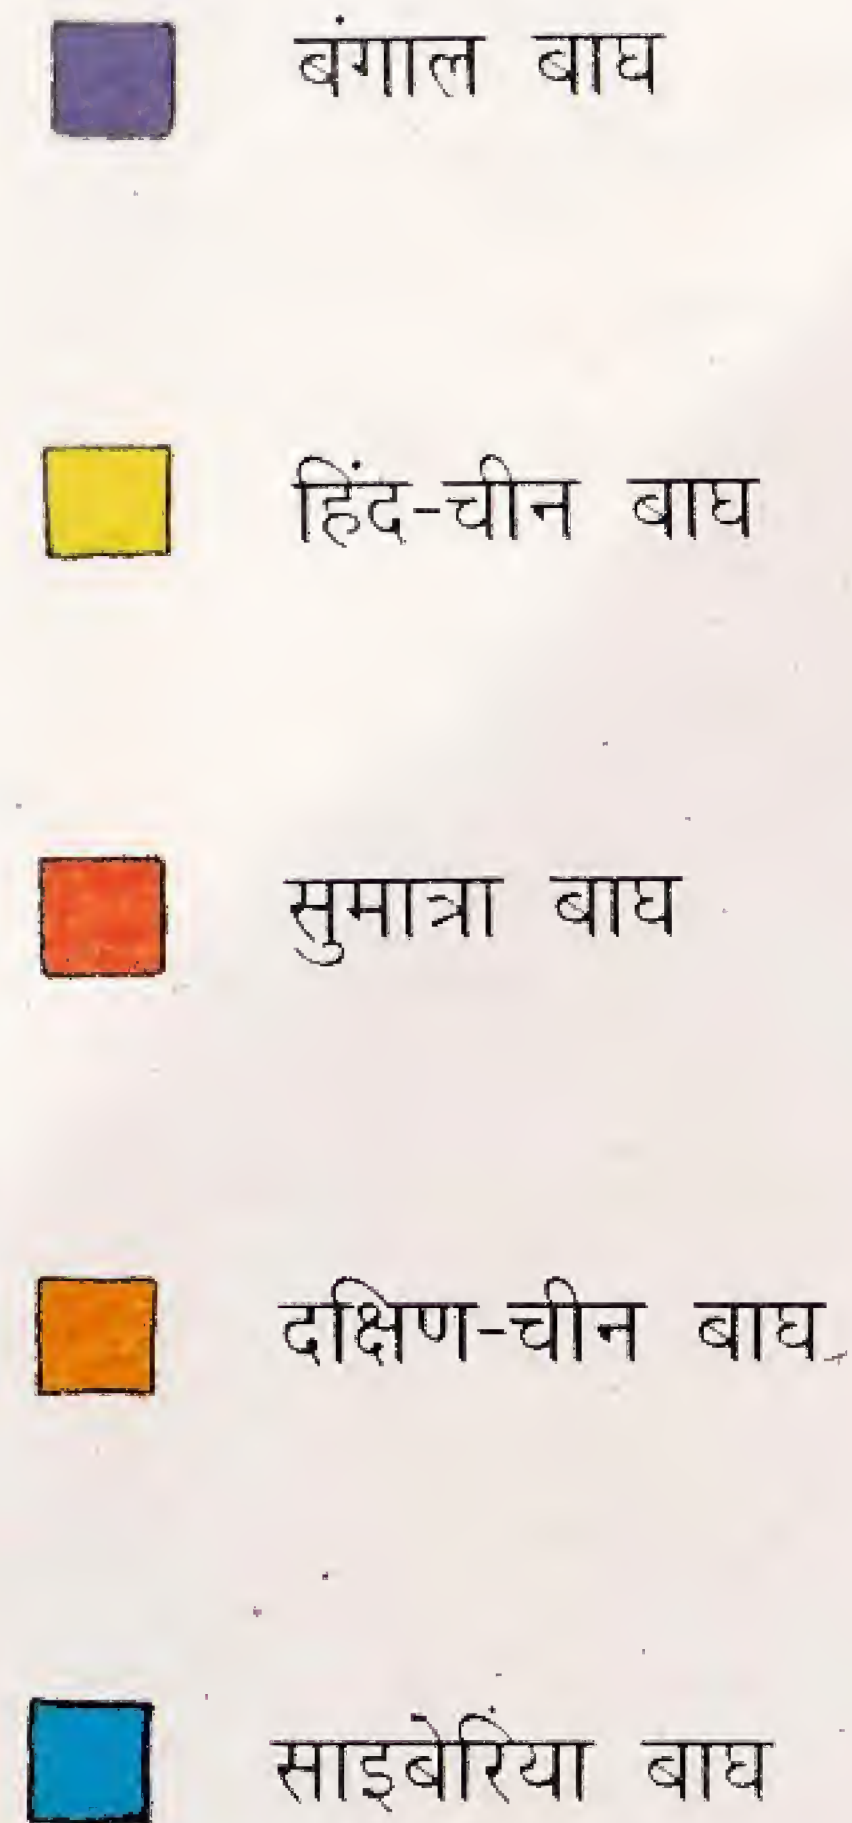 बंगाल बाघ
हिंद-चीन बाघ
सुमात्रा बाघ
दक्षिण-चीन बाघ
साइबेरिंया बाघ